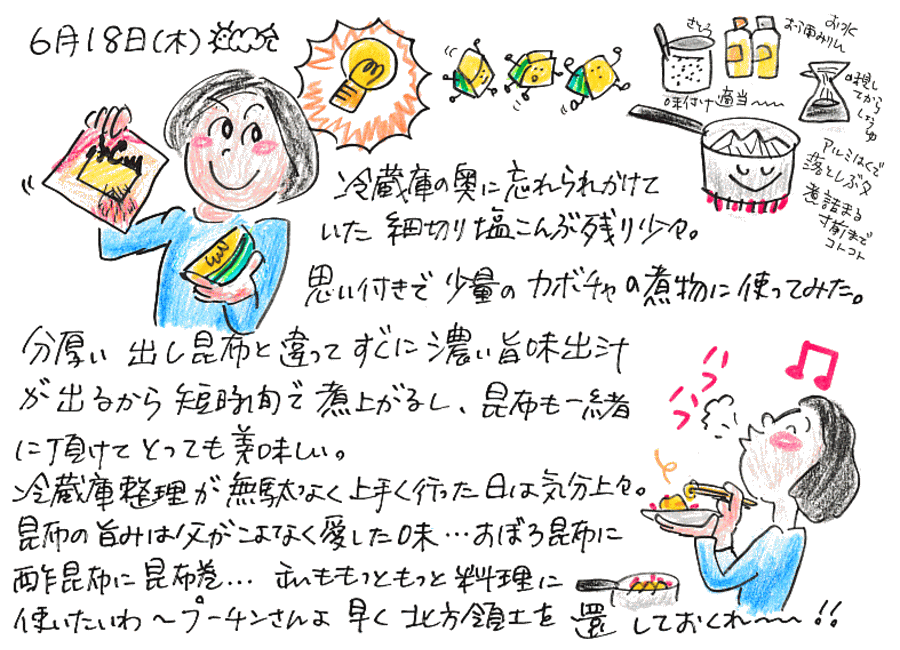 6月18日(木)
さとう
お水
お酒みりん
味付け適当〜〜
味見してからしょうゆ
アルミはくで
落としぶた
煮詰まる
寸前まで
コトコト
冷蔵庫の奥に忘れられかけて
いた 細切り塩こんぶ残り少々。
思い付きで 少量の カボチャの煮物に使ってみた。
分厚い 出し昆布と違って すぐに濃い旨味出汁
が出るから 短時間で煮上がるし、昆布も一緒
に頂けて とっても美味しい。
冷蔵庫整理が無駄なく上手く行った日は気分上々。
昆布の旨みは父がこよなく愛した味…おぼろ昆布に
酢昆布に昆布巻… もっともっと料理に
使いたいわ〜プーチンさんよ 早く 北方領土を 還 しておくれ〜〜!!